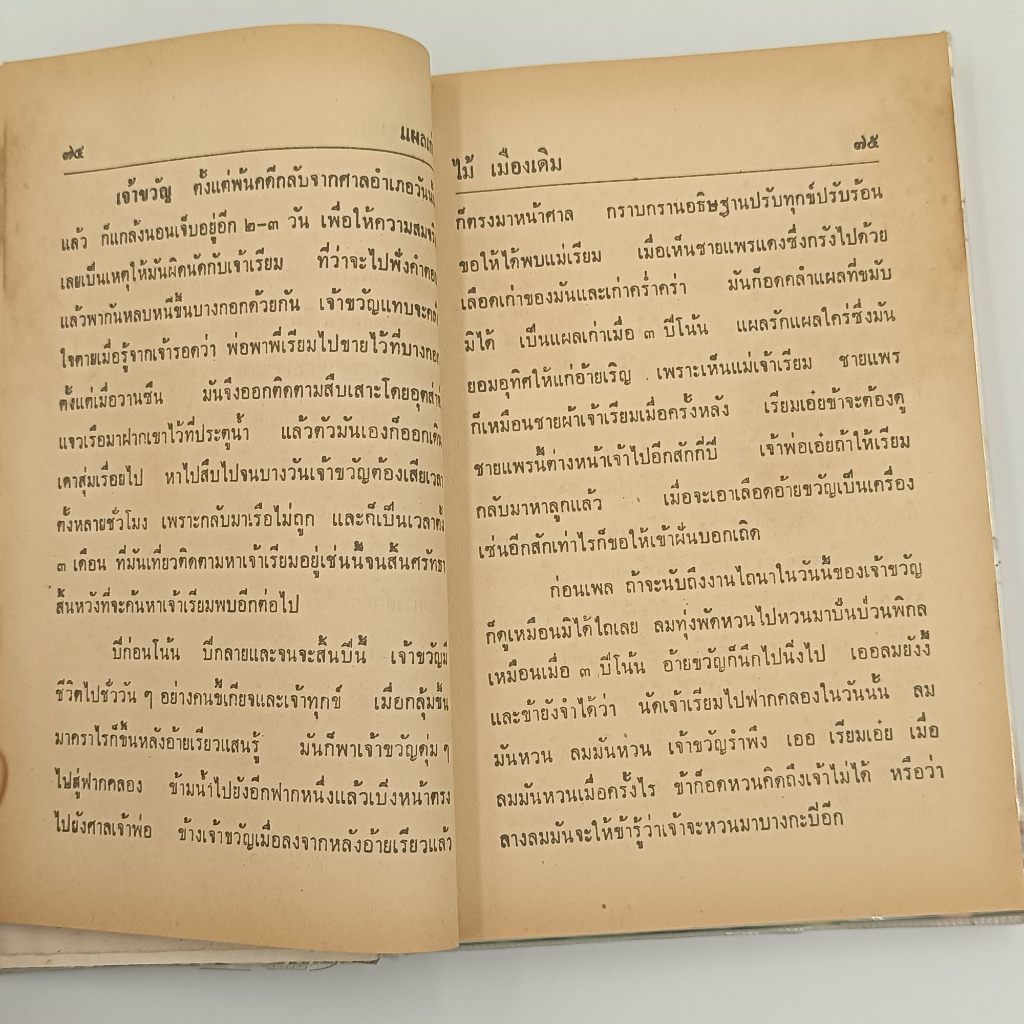 ๗๔
เจ้าขวัญ ตั้งแต่พ้นคดีกลับจากศาลอำเภอวันนั้น
แล้ว ก็แกล้งนอนเจ็บอยู่อีก ๒-๓ วัน เพื่อให้ความสมจริง
เลยเป็นเหตุให้มันผิดนัดกับเจ้าเรียม ที่ว่าจะไปฟังคำตอบ
แล้วพากันหลบหนีขึ้นบางกอกด้วยกัน เจ้าขวัญแทบจะ
ใจตายเมื่อรู้จากเจ้ารอดว่า พ่อพาพี่เรียมไปขายไว้ที่บางกอก
ตั้งแต่เมื่อวานซืน มันจึงออกติดตามสืบเสาะโดยอุตส่าห์
แจวเรือมาฝากเขาไว้ที่ประตูน้ำ แล้วตัวมันเองก็ออกเดิน
เดาสุ่มเรื่อยไป หาไปสืบไปจนบางวันเจ้าขวัญต้องเสียเวลา
ตั้งหลายชั่วโมง เพราะกลับมาเรือไม่ถูก และก็เป็นเวลาตั้ง
๓ เดือน ที่มันเที่ยวติดตามหาเจ้าเรียมอยู่เช่นนี้จนสิ้นศรัทธา
สิ้นหวังที่จะค้นหาเจ้าเรียมพบอีกต่อไป
ปีก่อนโน้น ปีกลายและจนจะสิ้นปีนี้ เจ้าขวัญมี
ชีวิตไปชั่ววัน ๆ อย่างคนขี้เกียจและเจ้าทุกข์ เมื่อกลุ้มขึ้น
มาคราไรก็ขึ้นหลังอ้ายเรียวแสนรู้ มันก็พาเจ้าขวัญดุ่ม ๆ
ไปสู่ฟากคลอง ข้ามน้ำไปยังอีกฟากหนึ่งแล้วเบิ่งหน้าตรง
ไปยังศาลเจ้าพ่อ ข้างเจ้าขวัญเมื่อลงจากหลังอ้ายเรียวแล้ว
ไม้ เมืองเดิม ๗๕
ก็ตรงมาหน้าศาล กราบกรานอธิษฐานปรับทุกข์ปรับร้อน
ขอให้ได้พบแม่เรียม เมื่อเห็นชายแพรแดงซึ่งกรังไปด้วย
เลือดเก่าของมันและเก่าคร่ำคร่า มันก็อดคลำแผลที่ขมับ
มิได้ เป็นแผลเก่าเมื่อ ๓ ปีโน้น แผลรักแผลใคร่ซึ่งมัน
ยอมอุทิศให้แก่อ้ายเริญ เพราะเห็นแม่เจ้าเรียม ชายแพร
ก็เหมือนชายผ้าเจ้าเรียมเมื่อครั้งหลัง เรียมเอ๋ยข้าจะต้องดู
ชายแพรนี้ต่างหน้าเจ้าไปอีกสักกี่ปี เจ้าพ่อเอ๋ยถ้าให้เรียม
กลับมาหาลูกแล้ว เมื่อจะเอาเลือดอ้ายขวัญเป็นเครื่อง
เซ่นอีกสักเท่าไรก็ขอให้เข้าฝันบอกเถิด
ก่อนเพล ถ้าจะนับถึงงานไถนาในวันนี้ของเจ้าขวัญ
ก็ดูเหมือนมิได้ไถเลย ลมทุ่งพัดหวนไปหวนมาปั่นป่วนพิกล
เหมือนเมื่อ ๓ ปีโน้น อ้ายขวัญก็นึกไปนิ่งไป เออลมยังงี้
และข้ายังจำได้ว่า นัดเจ้าเรียมไปฟากคลองในวันนั้น ลม
มันหวน ลมมันหวน เจ้าขวัญรำพึง เออ เรียมเอ๋ย เมื่อ
ลมมันหวนเมื่อครั้งไร ข้าก็อดหวนคิดถึงเจ้าไม่ได้ หรือว่า
ลางลมมันจะให้ข้ารู้ว่าเจ้าจะหวนมาบางกะปีอีก